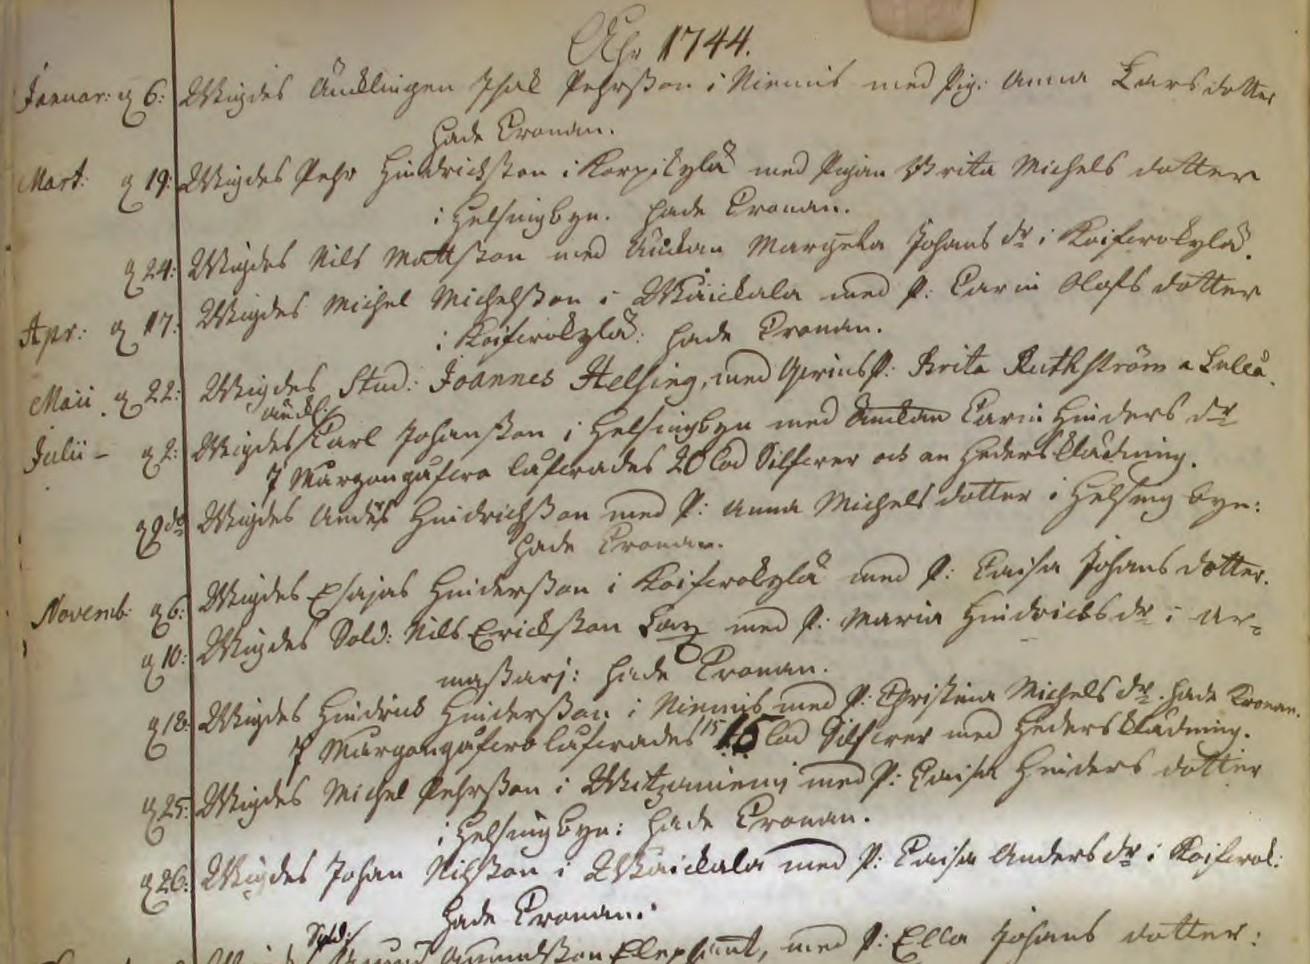 Åhr 1744.
Januar: d. 6: Wigdes Äncklingen Isak Pehrßon i Niemis med Pig: Anna Lars dotter
hade Cronan.
Mart: d. 19: Wigdes Pehr Hindrichßon i Korpikylä med Pigan Brita Michels dotter
i Helsingbyn. hade Cronan.
d. 24: Wigdes Nils Mattßon med Änckan Margeta Johans dr i Koifwokylä.
Apr: d. 17: Wigdes Michel Michelßon i Waickala med P: Carin Olofs dotter
i Koifwokylä: hade Cronan.
Maii d. 22: Wigdes Stud: Joannes Helsing, med P: Brita Ruthström a Luleå.
änckl:
Julii - d. 2: Wigdes Carl Johanßon i Helsingbyn med Änckan Carin Hinders dr
J Morgongåfwo låfwades 20 lod Silfwer och en Hederskládning.
d. 9 Wigdes Anders Hindrichßon med P: Anna Michels dotter i Helsing byn:
hade Cronan.
Novemb: d. 6: Wigdes Esajas Hinderßon i Koifwokylä med P: Caisa Johans dotter.
d. 10: Wigdes Sold: Nils Erickßon med P: Maria Hindrichs dr i Ar=
maßarj: hade Cronan.
d. 18: Wigdes Hindrich Hinderßon i Niemis med P: Christina Michels dr. hade Cronan.
J Morgongåfwo låfwades 15 15 lod Silfwer med Hederskládning.
d. 25: Wigdes Michel Pehrßon i Witzaniemj med P: Caisa Hinders dotter
i Helsingbyn: hade Cronan.
d. 26: Wigdes Johan Nilßon i Waickala med P: Caisa Anders dr i Koifwok:
hade Cronan.
Sold:
Amundßon Elephant, med P: Ella Johans dotter: